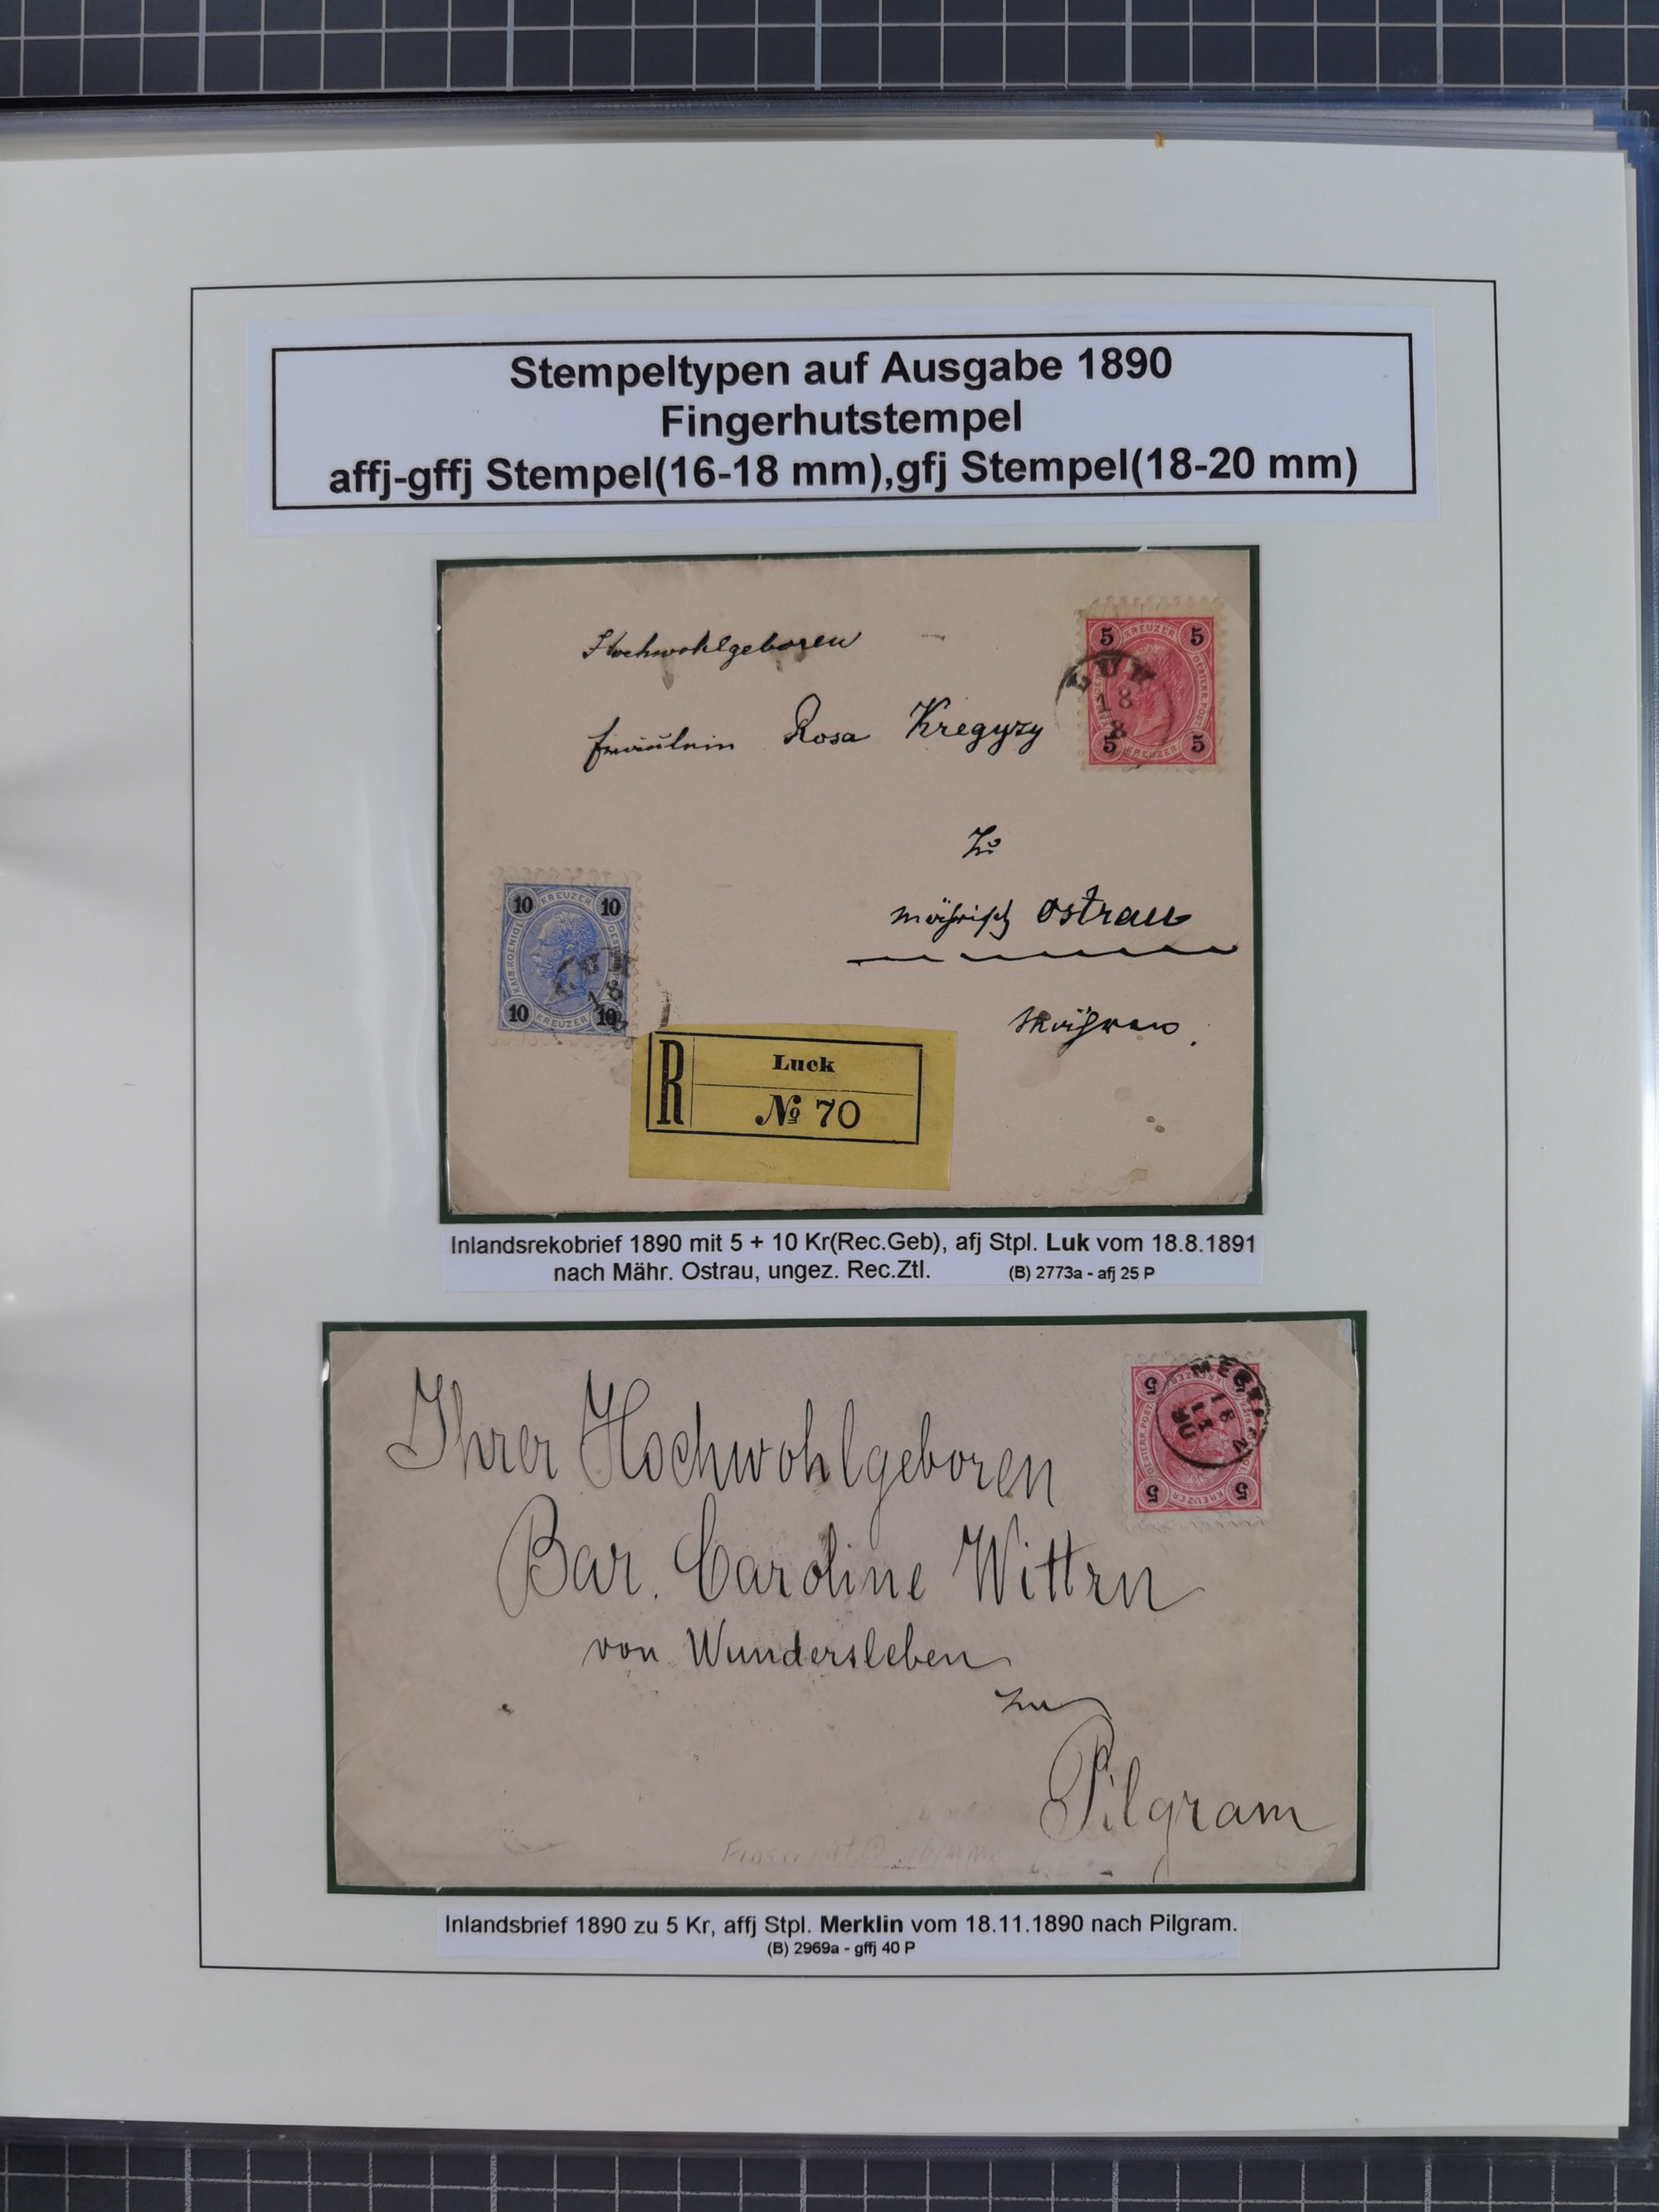 Stempeltypen auf Ausgabe 1890
Fingerhutstempel
affj-gffj Stempel(16-18 mm),gfj Stempel(18-20 mm)
Hochwohlgeboren
Fräulein Rosa Kregyzy
Zu
Mährisch Ostrau
Mähren.
5 KREUZER 5
5 KREUZER 5
LUK
18
8
10 KREUZER 10
10 KREUZER 10
LUK
18
R Luck
№ 70
Inlandsrekobrief 1890 mit 5 + 10 Kr(Rec.Geb), afj Stpl. Luk vom 18.8.1891
nach Mähr. Ostrau, ungez. Rec.Ztl. (B) 2773a - afj 25 P
Ihrer Hochwohlgeboren
Bar. Caroline Wittrn
von Wundersleben
zu
Pilgram
5 KREUZER 5
5 KREUZER 5
18
11
90
Inlandsbrief 1890 zu 5 Kr, affj Stpl. Merklin vom 18.11.1890 nach Pilgram.
(B) 2969a - gffj 40 P